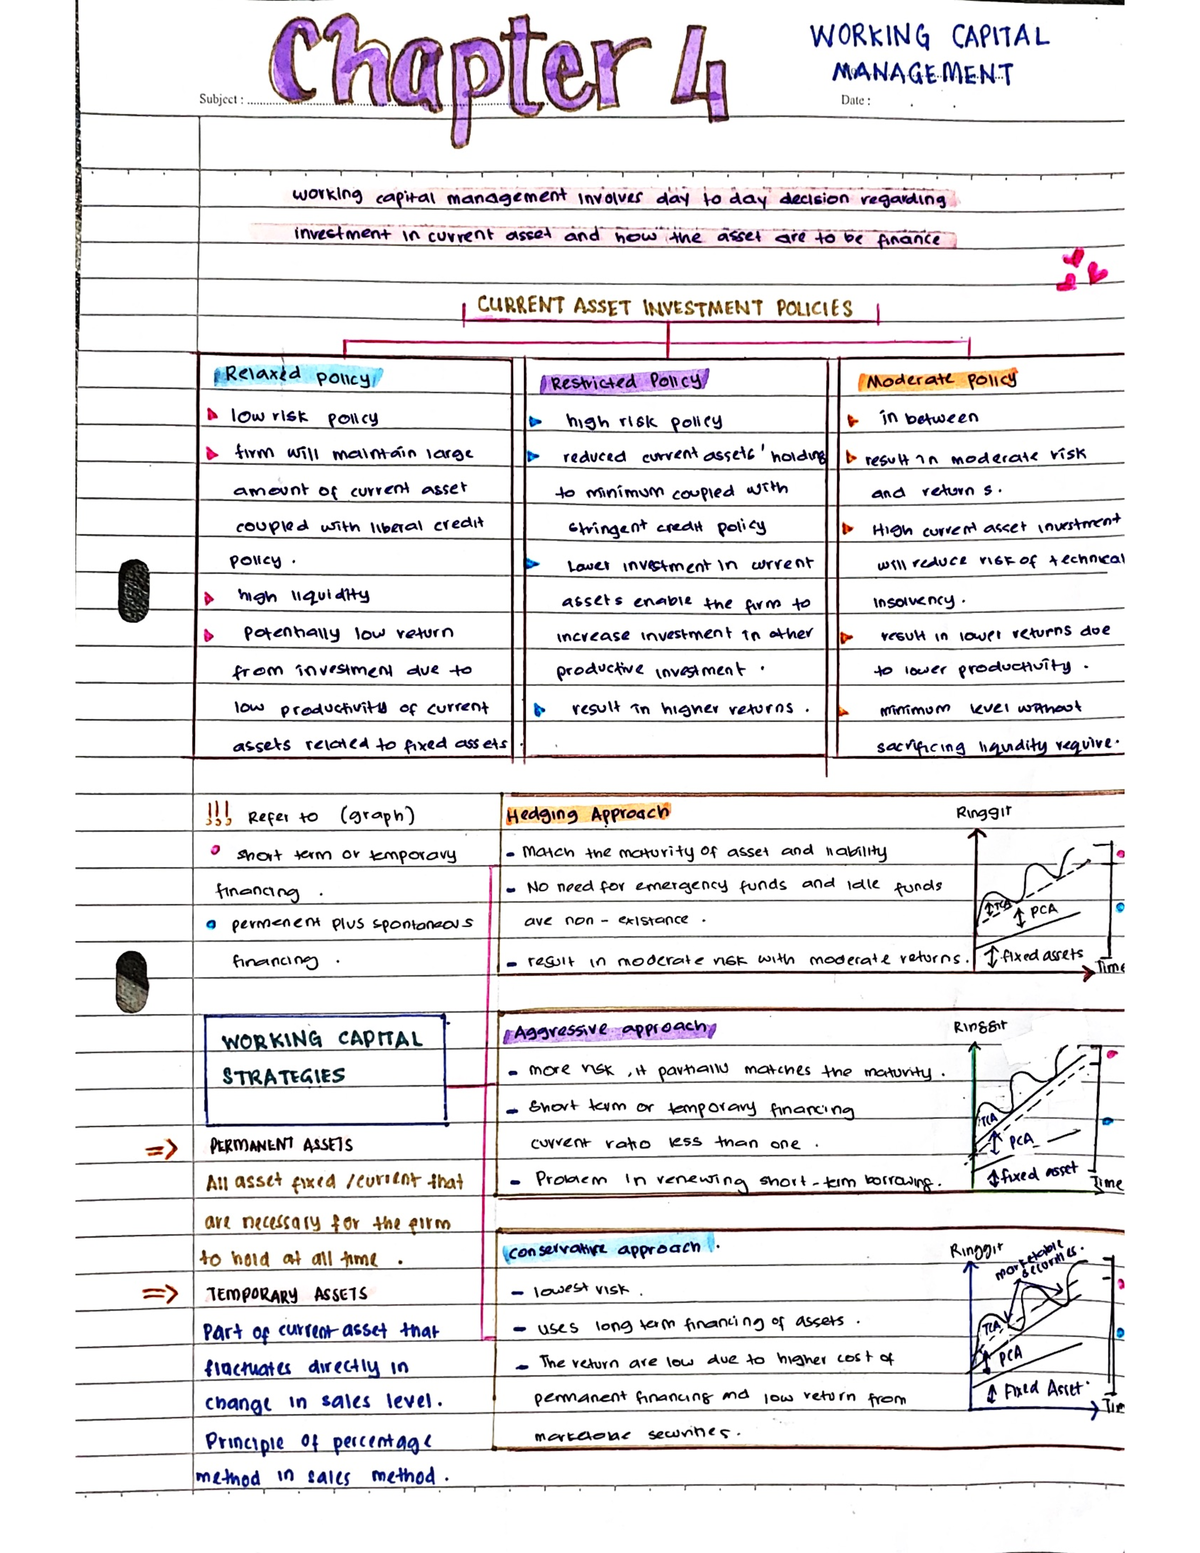 Chapter 4
WORKING CAPITAL
MANAGEMENT
Subject :
Date :
working capital management involves day to day decision regarding
investment in current asset and how the asset are to be finance
CURRENT ASSET INVESTMENT POLICIES
Relaxed policy
low risk policy
firm will maintain large
amount of current asset
coupled with liberal credit
policy.
high liquidity
potentially low return
from investment due to
low productivity of current
assets related to fixed assets.
Restricted Policy
high risk policy
reduced current assets' holding
to minimum coupled with
stringent credit policy
Lower investment in current
assets enable the firm to
increase investment in other
productive investment.
result in higher returns.
Moderate policy
in between
result in moderate risk
and returns.
High current asset investment
will reduce risk of technical
insolvency.
result in lower returns due
to lower productivity.
minimum level without
sacrificing liquidity require.
!!! Refer to (graph)
short term or temporary
financing.
permenent plus spontaneous
financing.
Hedging Approach
- Match the maturity of asset and liability
- No need for emergency funds and idle funds
are non-existance.
- result in moderate risk with moderate returns.
Ringgit
TCA
PCA
fixed assets
Time
WORKING CAPITAL
STRATEGIES
=> PERMANENT ASSETS
All asset fixed /current that
are necessary for the firm
to hold at all time.
=> TEMPORARY ASSETS
Part of current asset that
fluctuates directly in
change in sales level.
Principle of percentage
method in sales method.
Aggressive approach
- more risk, it partially matches the maturity.
- Short term or temporary financing
current ratio less than one.
- Problem in renewing short-term borrowing.
Ringgit
TCA
PCA
fixed asset
Time
conservative approach.
- lowest risk.
- uses long term financing of assets.
- The return are low due to higher cost of
permanent financing and low return from
marketable securities.
Ringgit
marketable
securities.
TCA
PCA
Fixed Asset.
Tim